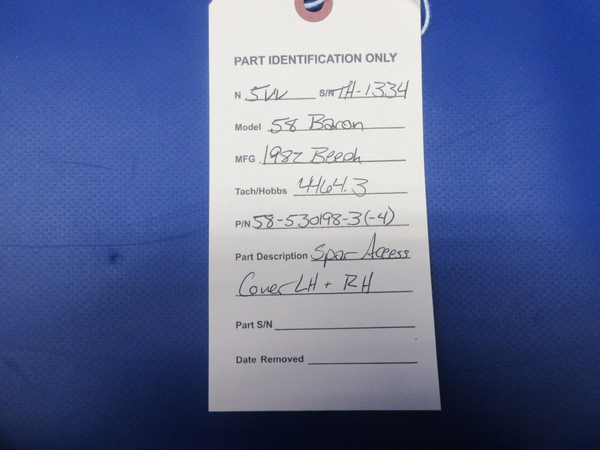 PART IDENTIFICATION ONLY
N 5VV S/N TH-1334
Model 58 Baron
MFG 1982 Beech
Tach/Hobbs 4464.3
P/N 58-530198-3(-4)
Part Description Spar Access
Cover LH + RH
Part S/N
Date Removed